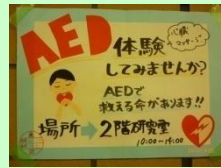 AED 体験
心臓
マッサージ
してみませんか?
AEDで
救える命があります!!
場所 → 2階研究室
10:00~14:00